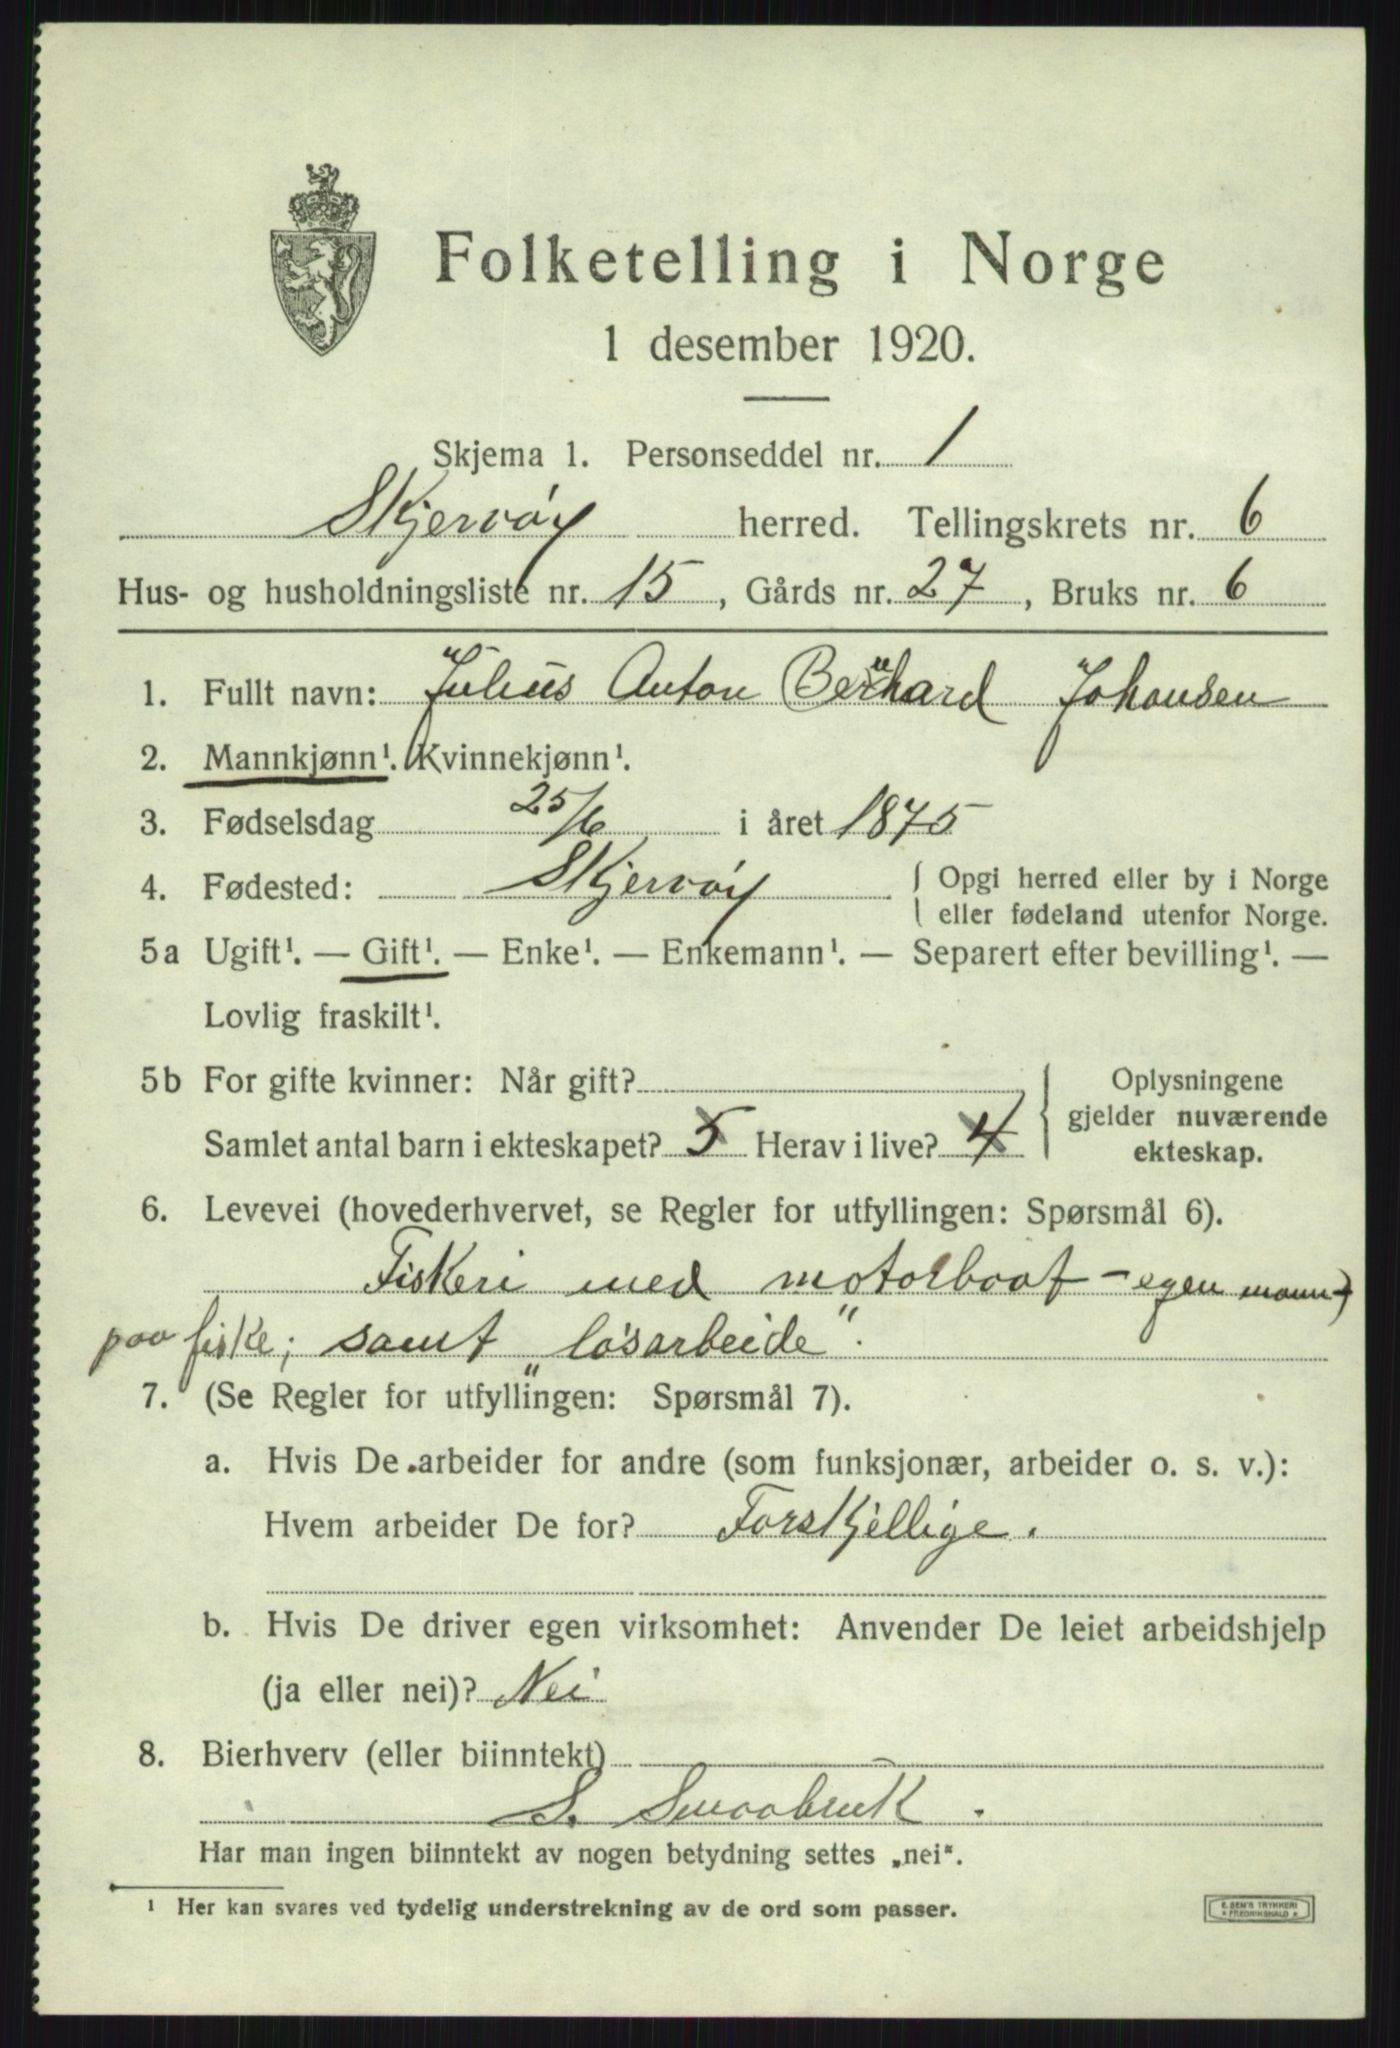 Folketelling i Norge
1 desember 1920.
Skjema 1. Personseddel nr. 1
Skjervöy herred. Tellingskrets nr. 6
Hus- og husholdningsliste nr. 15, Gårds nr. 27, Bruks nr. 6
1. Fullt navn: Julius Anton Bernhard Johansen
2. Mannkjønn¹. Kvinnekjønn¹.
3. Fødselsdag 25/6 i året 1875
4. Fødested: Skjervöy { Opgi herred eller by i Norge
eller fødeland utenfor Norge.
5a Ugift¹. — Gift¹. — Enke¹. — Enkemann¹. — Separert efter bevilling¹. —
Lovlig fraskilt¹.
5b For gifte kvinner: Når gift?
Samlet antal barn i ekteskapet? 5 Herav i live? 4
Oplysningene
gjelder nuværende
ekteskap.
6. Levevei (hovederhvervet, se Regler for utfyllingen: Spørsmål 6).
Fiskeri med motorbaat - egen mann
paa fiske; samt „lösarbeide“.
7. (Se Regler for utfyllingen: Spørsmål 7).
a. Hvis De arbeider for andre (som funksjonær, arbeider o. s. v.):
Hvem arbeider De for? Forskjellige.
b. Hvis De driver egen virksomhet: Anvender De leiet arbeidshjelp
(ja eller nei)? Nei
8. Bierhverv (eller biinntekt)
S. Smaabruk.
Har man ingen biinntekt av nogen betydning settes „nei“.
¹ Her kan svares ved tydelig understrekning av de ord som passer.
E. SEM'S TRYKKERI
* FREDRIKSHALD *